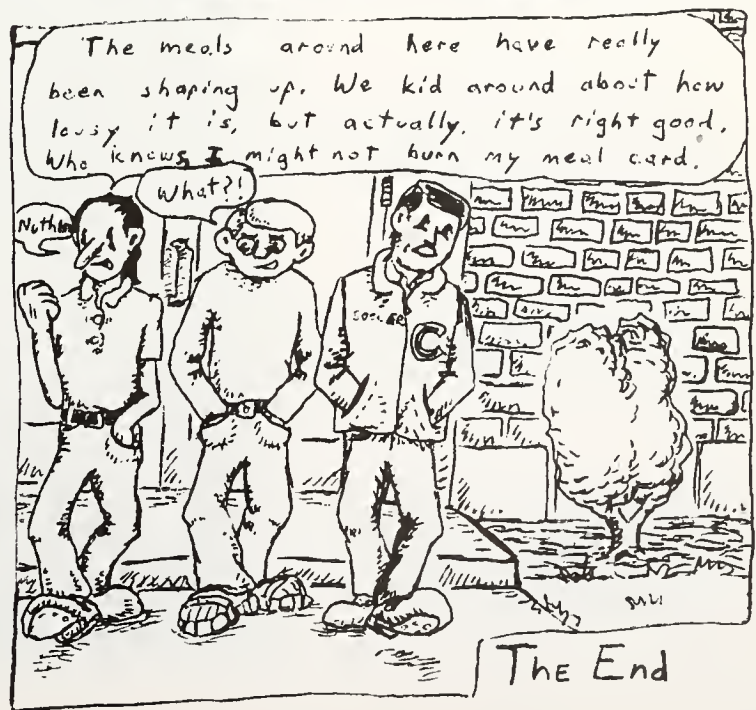 The meals around here have really
been shaping up. We kid around about how
lousy it is, but actually, it's right good.
Who knows I might not burn my meal card.
What?!
Nuthin
SOCCER
C
The End